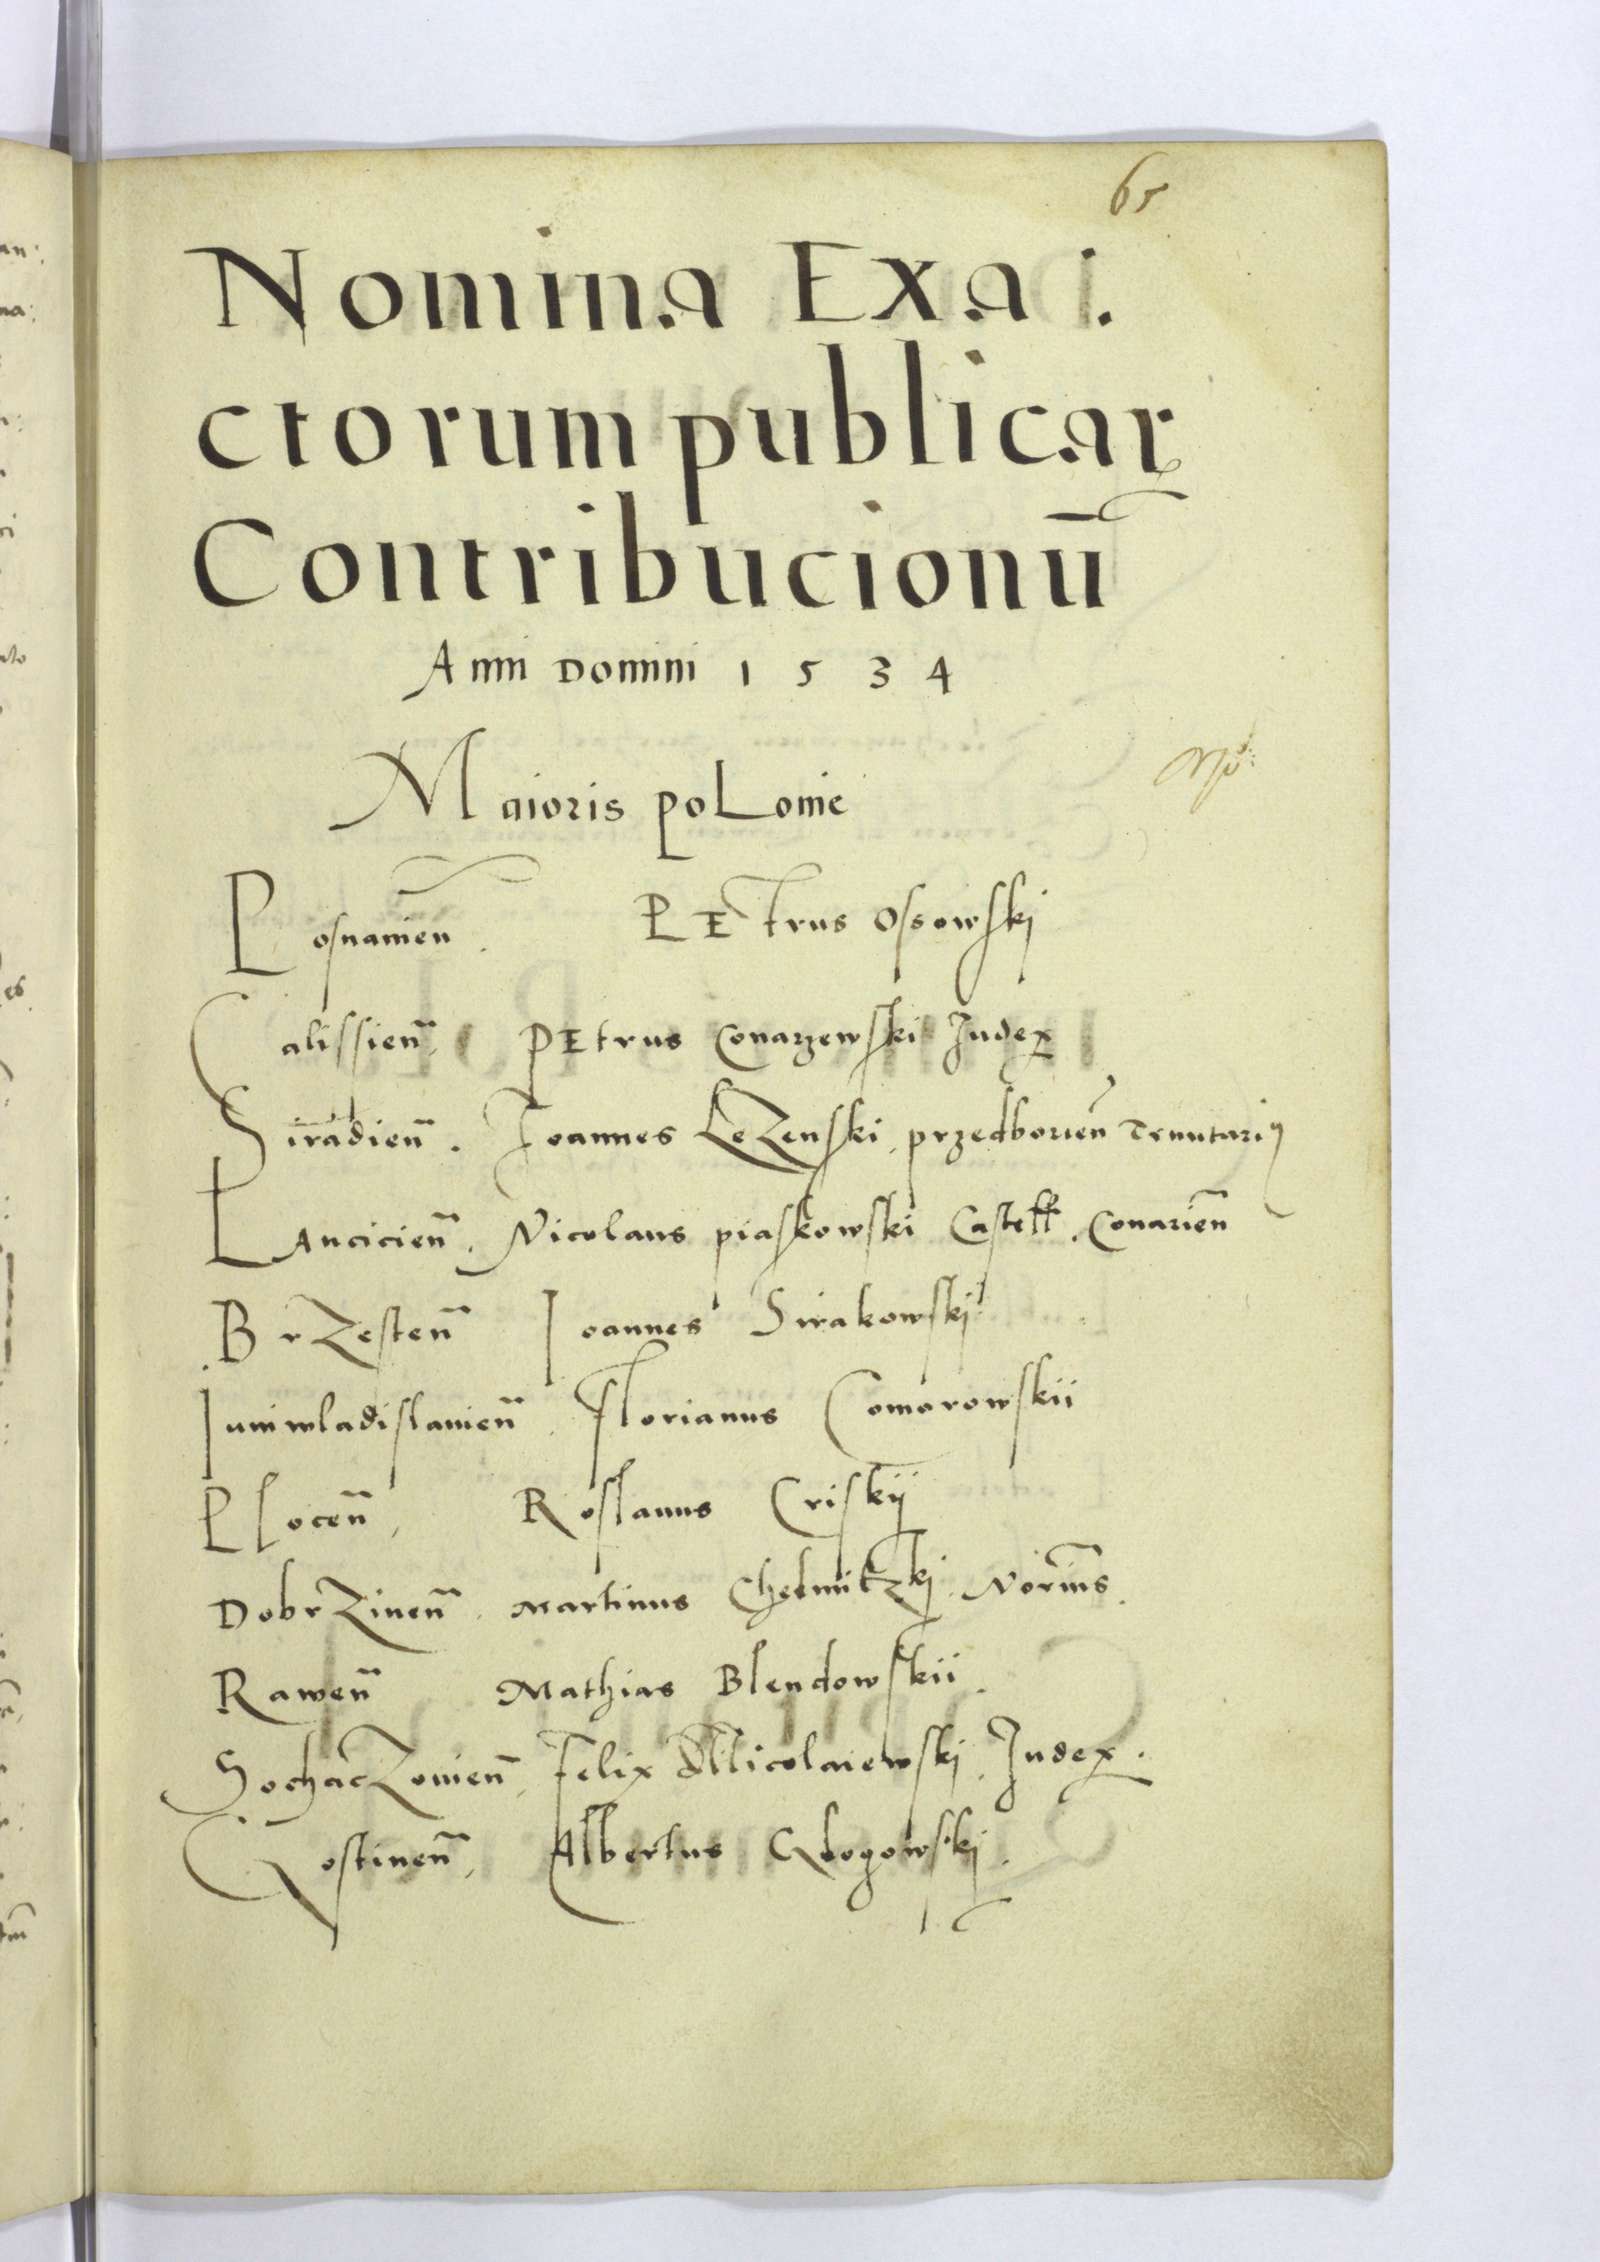 65
Nomina Exa
ctorum publicaꝝ
Contribucionū
Anni Domini 1534
Maioris polonie
Posnanien̄. Petrus Ossowskj
Calissien̄, Petrus Conarzewski Judex
Siradien̄. Joannes LeZenski, przedborien̄ Tenutariꝰ
Lancicien̄, Nicolaus piaskowski Castell. Conarien̄
BrZesten̄ Ioannes Sirakowskj
Iuniwladislauien̄, florianus Comorowskii
Plocen̄, Roslanus Criskij
DobrZinen̄, Martinus Chelmitzkj
Rawen̄ Mathias Blendowskii.
SochacZouien̄, Felix Micolaiewskj, Judex.
Gostinen̄, Albertus